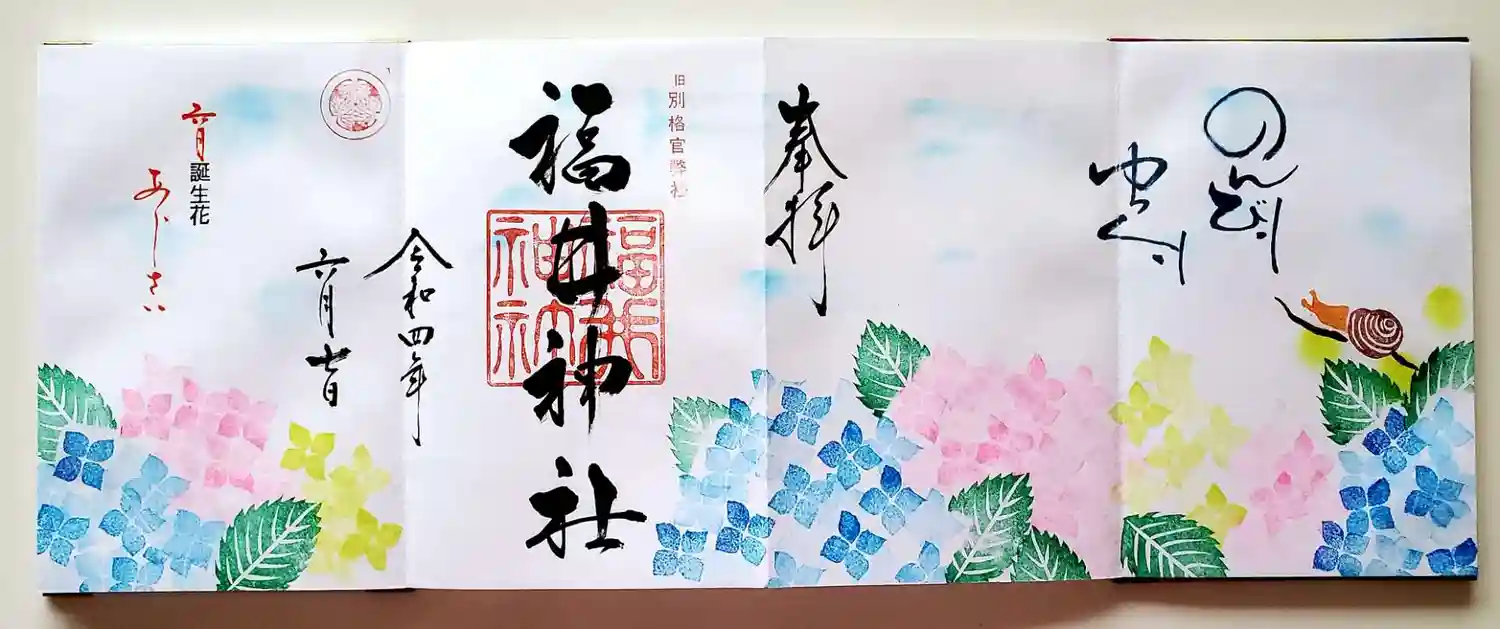 のんびり
ゆっくり
奉拝
旧別格官幣社
福井神社
福井
神社
令和四年
六月七日
六月誕生花
あじさい